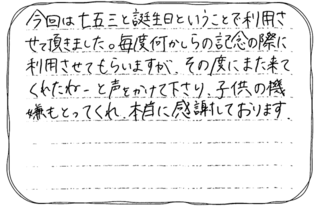 今回は七五三と誕生日ということで利用さ
せて頂きました。毎度何かしらの記念の際に
利用させてもらいますが、その度にまた来て
くれたねーと声をかけて下さり、子供の機
嫌もとってくれ、本当に感謝しております。